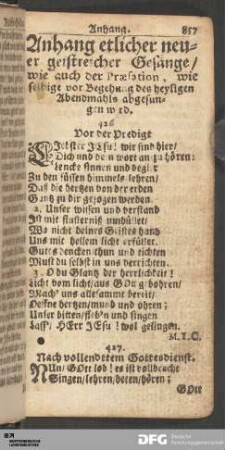 Anhang. 857
Anhang etlicher neu-
er geistreicher Gesänge/
wie auch der Præfation, wie
selbige vor Begehung des heyligen
Abendmahls abgesun-
gen werd.
426
Vor der Predigt
LIebster JEsu! wir sind hier/
Dich und dein wort anzuhören:
lencke sinnen und begier
Zu den süssen himmels lehren/
Daß die hertzen von der erden
Gantz zu dir gezogen werden.
2. Unser wissen und verstand
Ist mit finsternis umhüllet/
Wo nicht deines Geistes hand
Uns mit hellem licht erfüllet.
Gutes dencken thun und tichten
Must du selbst in uns verrichten.
3. O du Glantz der herrlichkeit!
Licht vom licht/aus GOtt gebohren/
Mach' uns allesammt bereit/
Oefne hertzen/mund und ohren/
Unser bitten/flehn und singen
Lass/ HErr JEsu! wol gelingen.
M.T.C.
427.
Nach vollendetem Gottesdienst.
NUn/ GOtt lob! es ist vollbracht
Singen/lehren/beten/hören;
GOtt
DFG Deutsche
Forschungsgemeinschaft